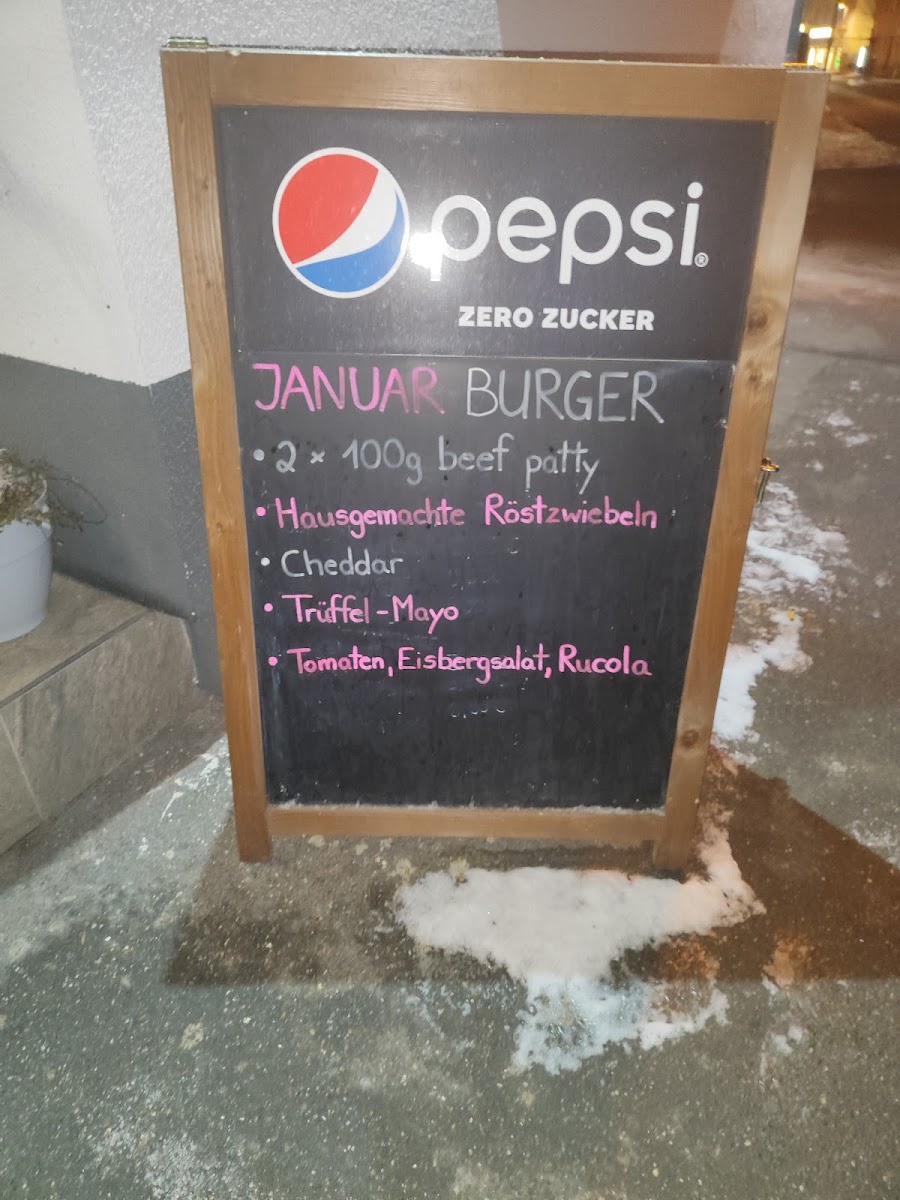 pepsi®
ZERO ZUCKER
JANUAR BURGER
• 2 × 100g beef patty
• Hausgemachte Röstzwiebeln
• Cheddar
• Trüffel-Mayo
• Tomaten, Eisbergsalat, Rucola